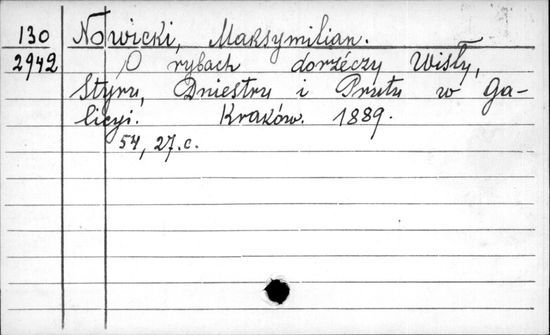 130 Nowicki, Maksymilian.
2942 O rybach dorzéczy Wisły,
Styru, Dniestru i Prutu w Ga-
licyi. Kraków. 1889.
54, 27.c.